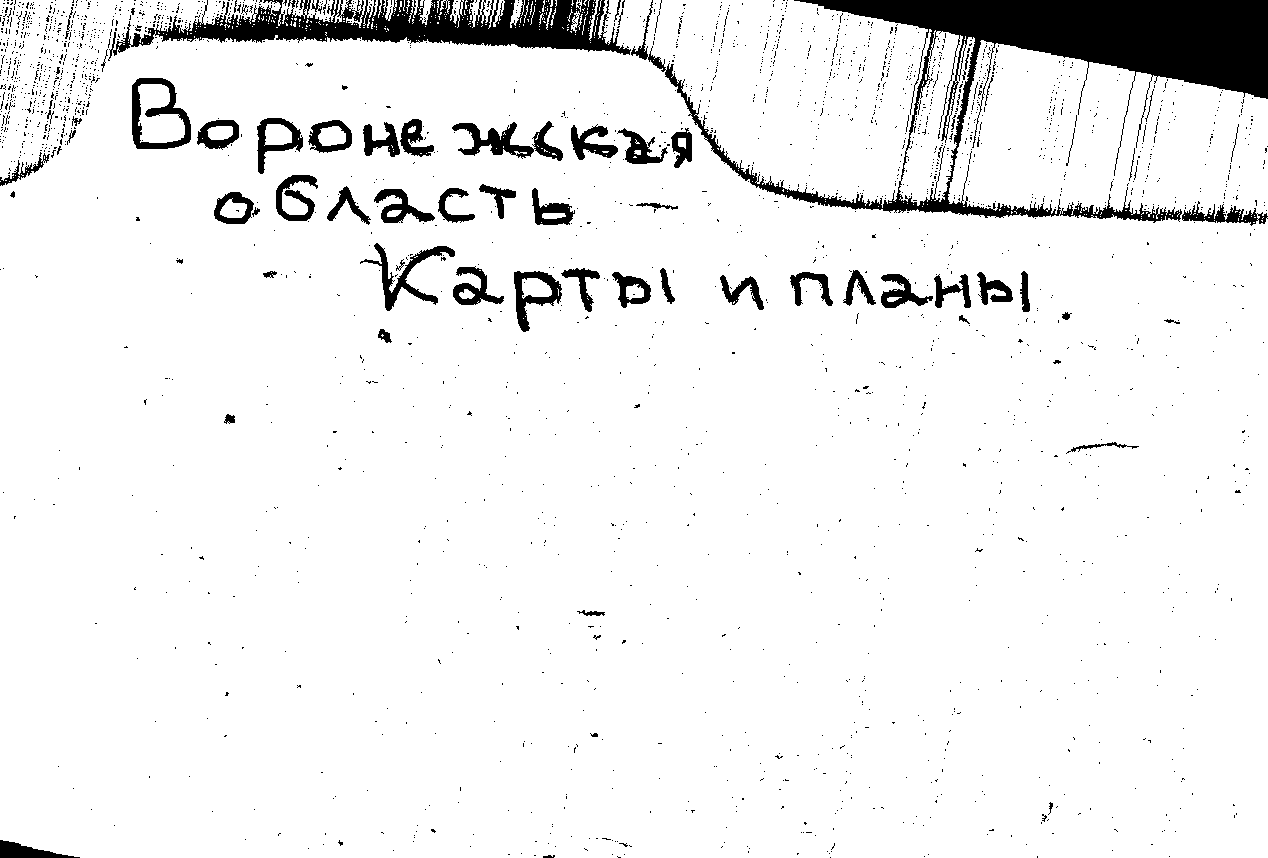 Воронежская
область
Карты и планы.